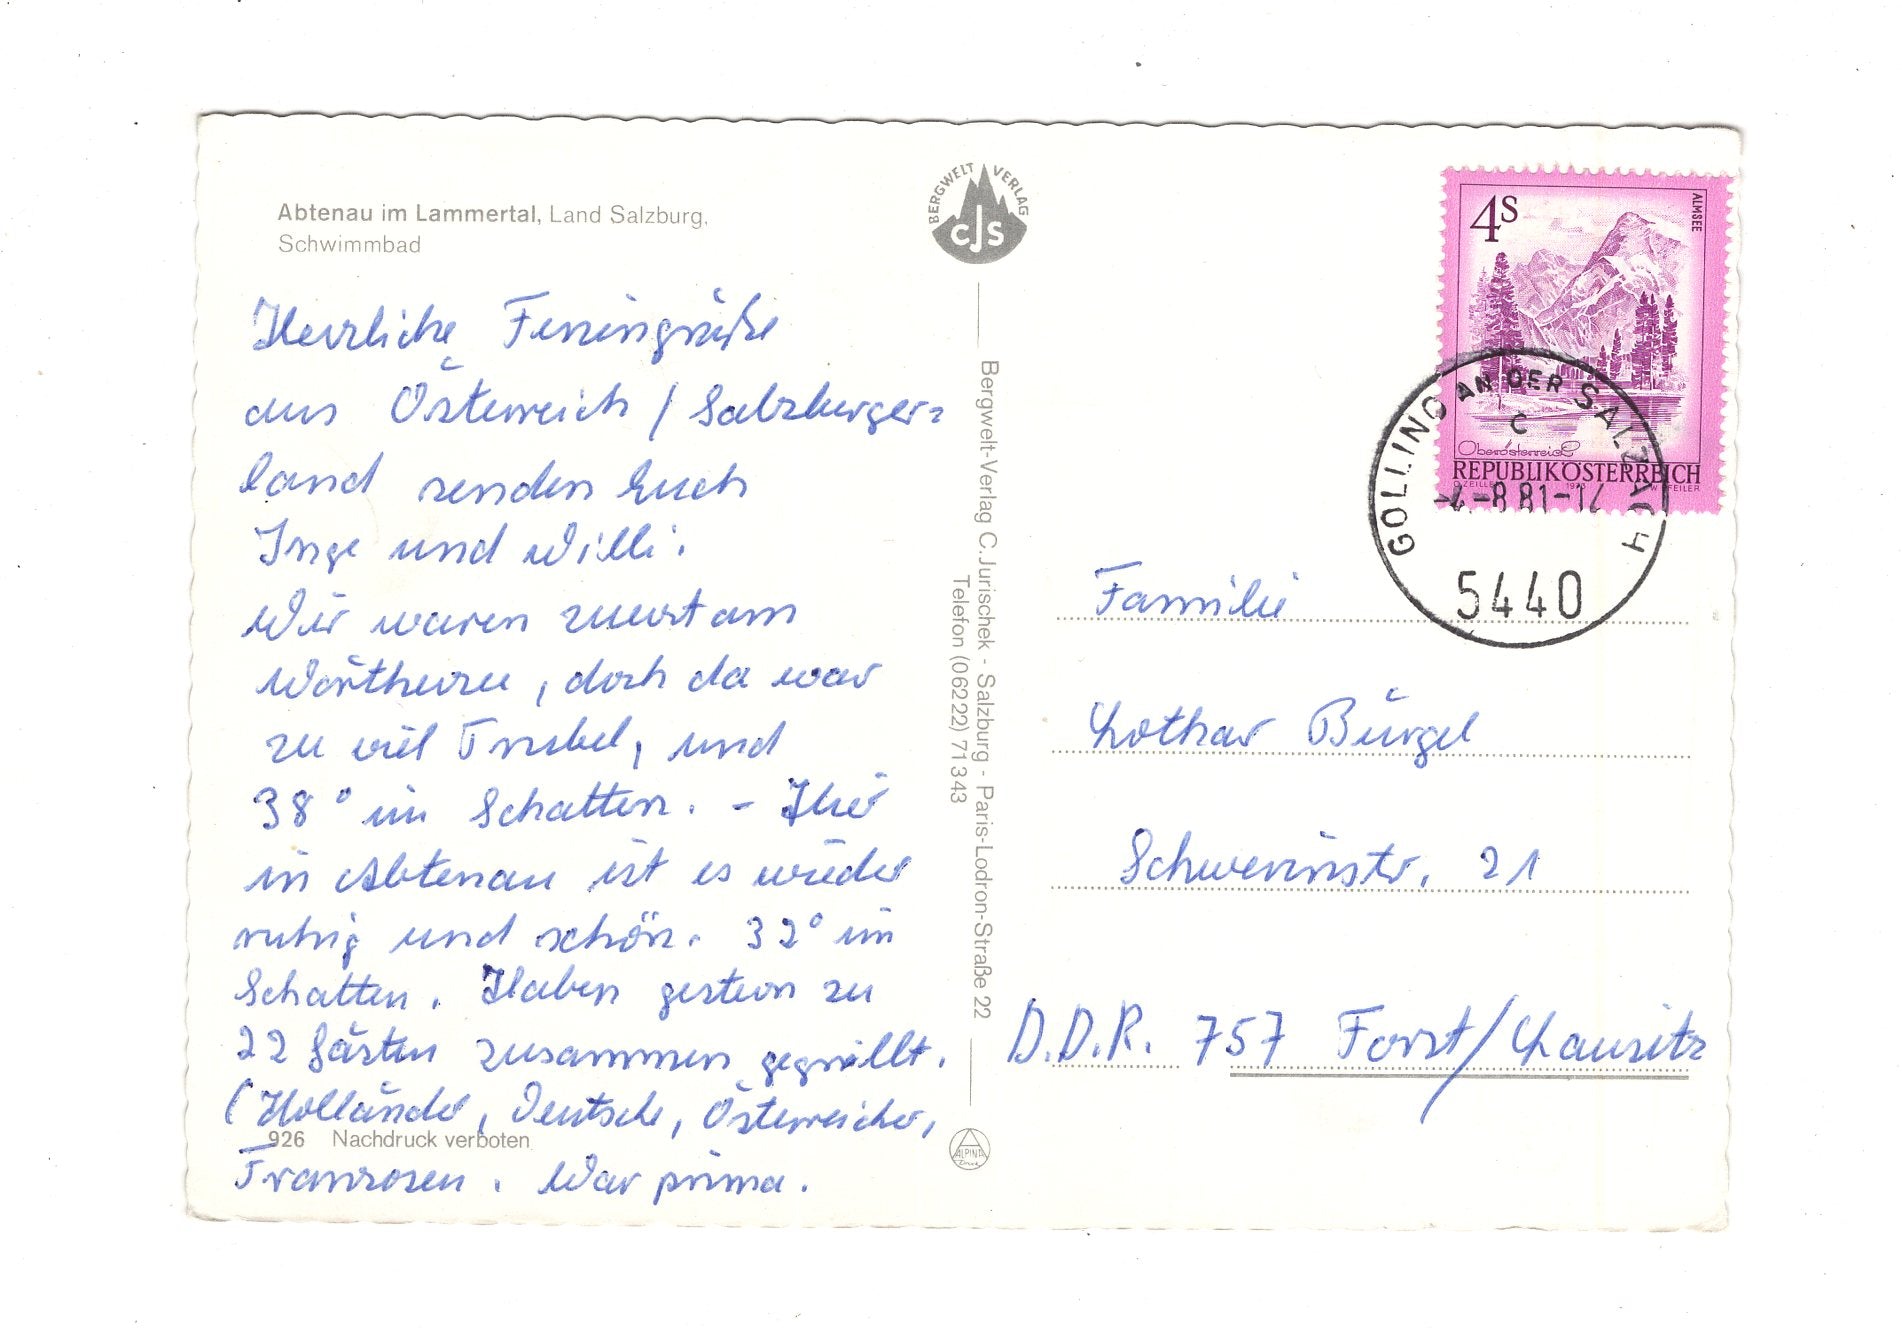 Abtenau im Lammertal, Land Salzburg,
Schwimmbad
Herrliche Feriengrüße
aus Österreich / Salzburger=
land senden Euch
Inge und Willi.
Wir waren zuerst am
Wörthersee, doch da war
zu viel Trubel, und
38° im Schatten. – Hier
in Abtenau ist es wieder
ruhig und schön. 32° im
Schatten. Haben gestern zu
22 Gästen zusammen gegrillt.
(Holländer, Deutsche, Österreicher,
926 Nachdruck verboten
Franzosen. War prima.
BERGWELT VERLAG
CJS
Bergwelt-Verlag C.Jurischek - Salzburg - Paris-Lodron-Straße 22
Telefon (06222) 71343
ALPINA
4S
ALMSEE
Oberösterreich
REPUBLIK ÖSTERREICH
GOLLING AN DER SALZACH
C
-4.-8.81-14
5440
Familie
Lothar Bürgel
Schwerinstr. 21
D.D.R. 757 Forst/Lausitz